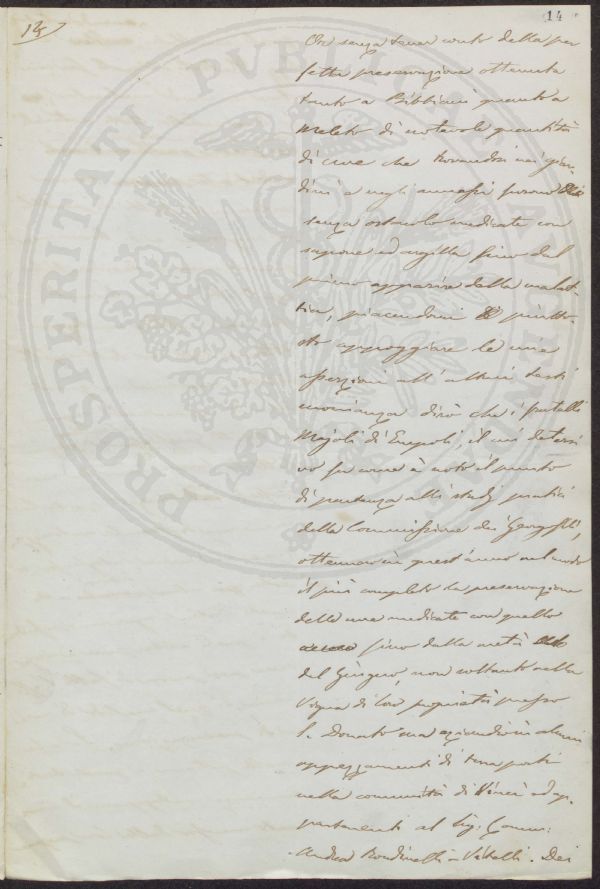 14
13
Or senza tener conto della per
fetta preservazione ottenuta
tanto a Bibbiani quanto a
Meleto di notevole quantità
di uve che trovandosi nei giar-
dini e negli annessi furono
senza ostacolo medicate con
sapone ed argilla fino dal
primo apparire della malat-
tia, piacendomi piutto-
sto appoggiare le mie
asserzioni all'altrui testi
monianza dirò che i fratelli
Majoli di Empoli, il cui
fu come è noto il punto
di partenza alli studj pratici
della Commissione dei Georgofili,
ottennero in quest'anno nel modo
il più completo la preservazione
delle uve medicate con quello
fino dalla metà
del Giugno, non soltanto nella
Vigna di loro proprietà presso
S. Donato ma eziandio in alcuni
appezzamenti di terra posti
nella comunità di Vinci ed ap-
partenenti al Sig: Comm:
Andrea Bondinelli-Vitelli. Dei
PROSPERITATI PUBLICAE AUGENDAE